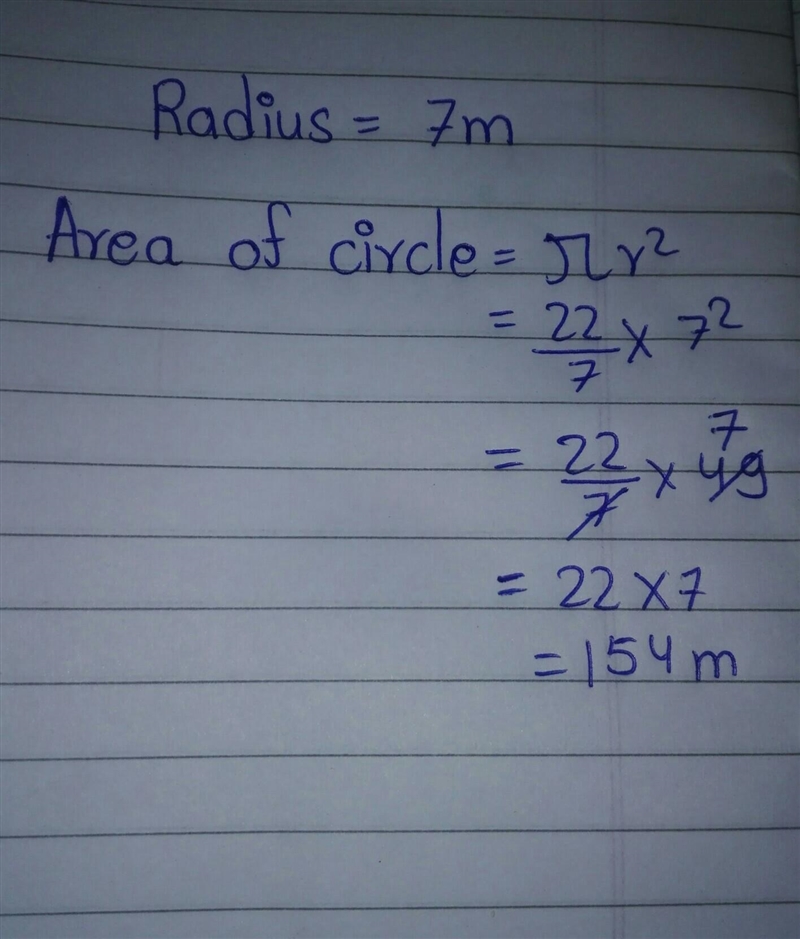 Radius = 7m
Area of circle = πr²
= 22/7 × 7²
= 22/7 × 49 7
= 22 × 7
= 154 m